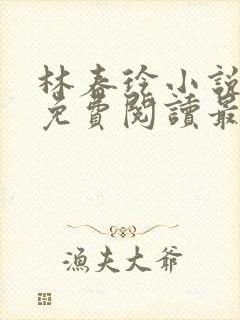 林春徐小說
免費閱讀最
漁夫大爺